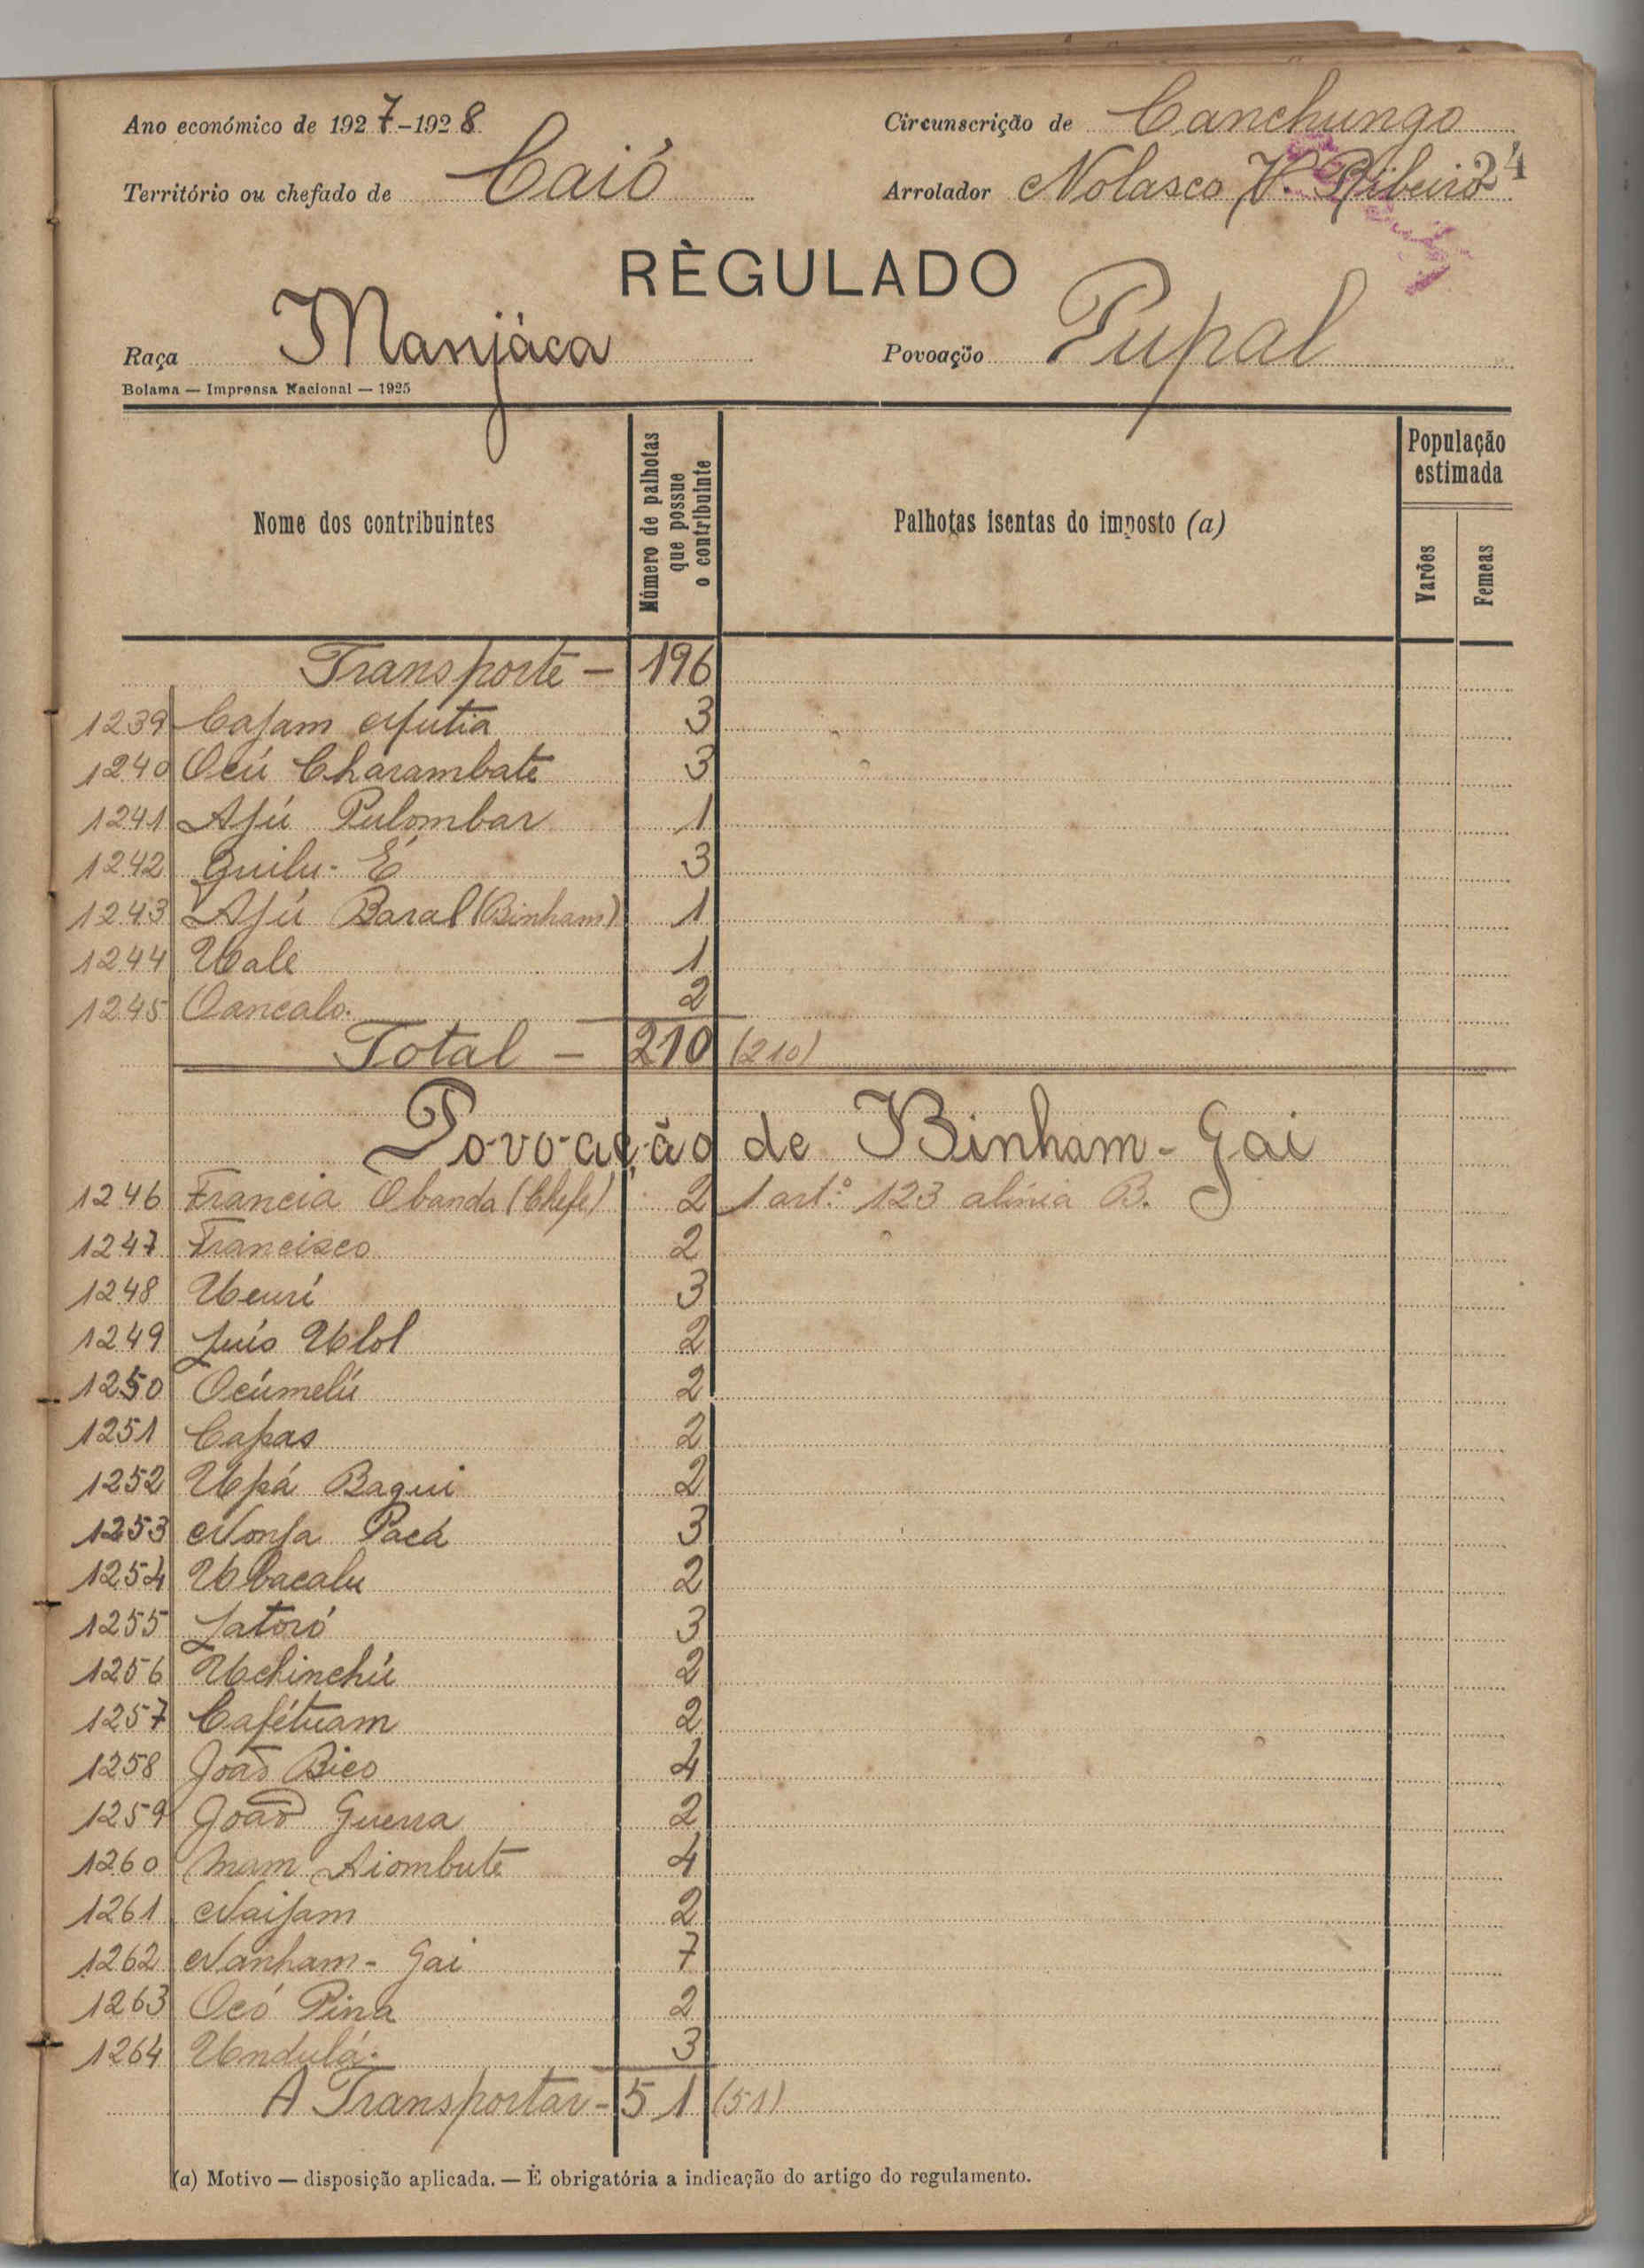 Ano económico de 1927-1928 Circunscrição de Canchungo
24
Território ou chefado de Caió Arrolador Nolasco V. Ribeiro
RÈGULADO
Raça Manjáca Povoação Pupal
Bolama — Imprensa Nacional — 1925
Nome dos contribuintes
Número de palhotas que possue o contribuinte
Palhotas isentas do imposto (a)
População estimada
Varões
Femeas
Transporte - 196
1239 Cajam Afutia 3
1240 Ocú Charambate 3
1241 Ajú Pulombar 1
1242 Guilu-É 3
1243 Ajú Baral (Binham) 1
1244 Uale 1
1245 Oancalo. 2
Total - 210 (210)
Povoação de Binham-Gai
1246 Francia Obanda (Chefe) 2 1 art.º 123 alinia B.
1247 Francisco 2
1248 Ucuri 3
1249 Luís Ulol 2
1250 Ocúmelú 2
1251 Capas 2
1252 Upá Bagui 2
1253 Nonja Pacá 3
1254 Ubacalu 2
1255 Jatoró 3
1256 Uchinchú 2
1257 Cafétuam 2
1258 João Bico 4
1259 João Guerra 2
1260 Mam Aiombute 4
1261 Naijam 2
1262 Nanham-Gai 7
1263 Ocó Pina 2
1264 Undulá. 3
A Transportar - 51 (51)
(a) Motivo — disposição aplicada. — É obrigatória a indicação do artigo do regulamento.